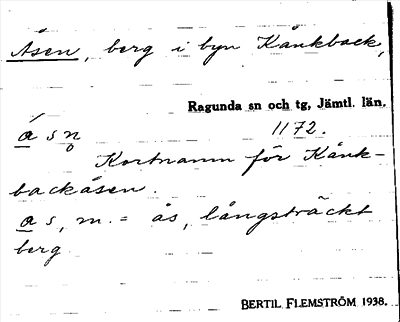 Åsen, berg i byn Kånkback,
Ragunda sn och tg, Jämtl. län.
å s n̥ 1172.
Kortnamn för Kånk-
backåsen.
a s, m. = ås, långsträckt
berg.
BERTIL FLEMSTRÖM 1938.